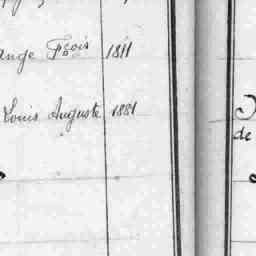 ange Fçois 1811
Louis Auguste 1881
de